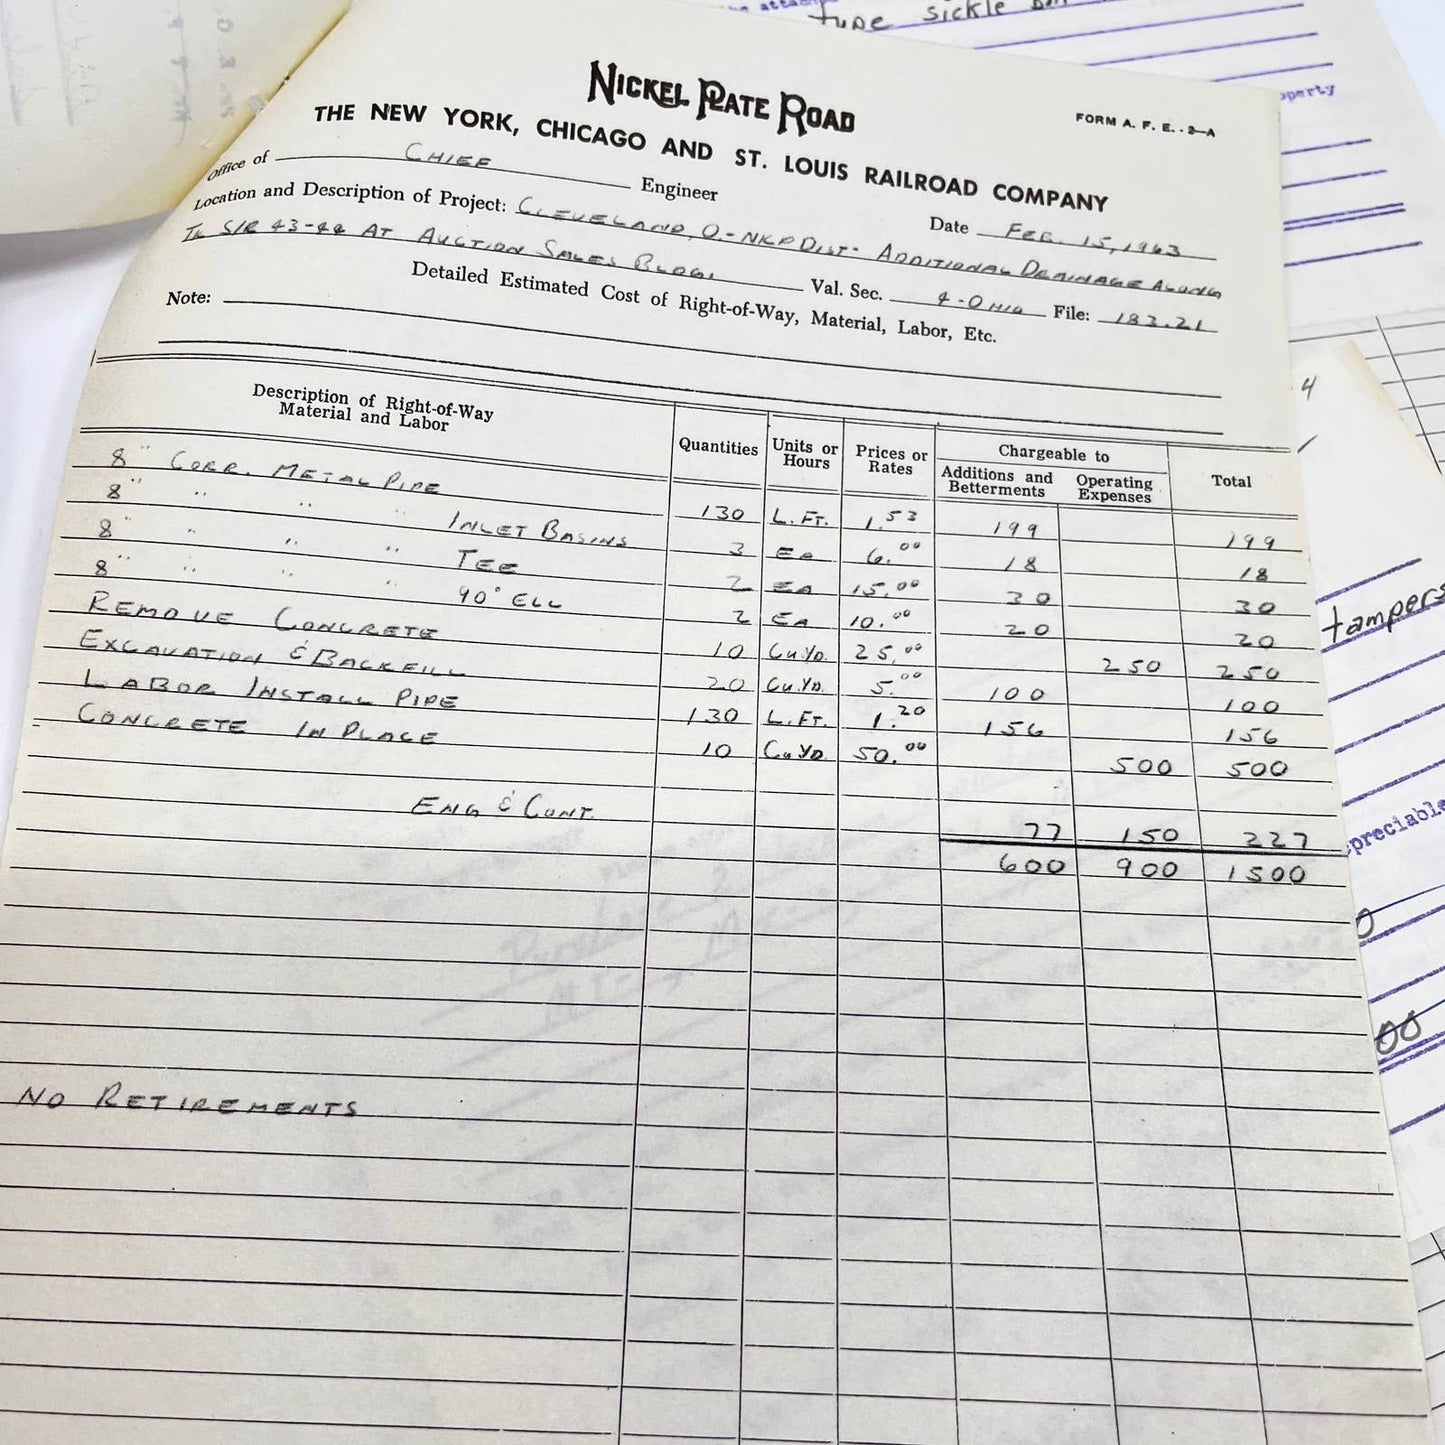 type sickle
operty
NICKEL PLATE ROAD
FORM A. F. E. - 2-A
THE NEW YORK, CHICAGO AND ST. LOUIS RAILROAD COMPANY
Office of CHIEF Engineer
Date FEB. 15, 1963
Location and Description of Project: CLEVELAND, O. - NKP DIST - ADDITIONAL DRAINAGE ALONG
TK S/R 43-44 AT AUCTION SALES BLDG. Val. Sec. 4-OHIO File: 183.21
Detailed Estimated Cost of Right-of-Way, Material, Labor, Etc.
Note:
Description of Right-of-Way Material and Labor Quantities Units or Hours Prices or Rates Chargeable to Additions and Betterments Operating Expenses Total
8" CORR. METAL PIPE 130 L. FT. 1.53 199 199
8" " " " INLET BASINS 3 EA 6.00 18 18
8" " " " TEE 2 EA 15.00 30 30
8" " " " 90° ELL 2 EA 10.00 20 20
REMOVE CONCRETE 10 CU.YD. 25.00 250 250
EXCAVATION & BACKFILL 20 CU.YD. 5.00 100 100
LABOR INSTALL PIPE 130 L. FT. 1.20 156 156
CONCRETE IN PLACE 10 CU.YD. 50.00 500 500
ENG & CONT. 77 150 227
600 900 1500
NO RETIREMENTS
4
tampers
preciable
0
00